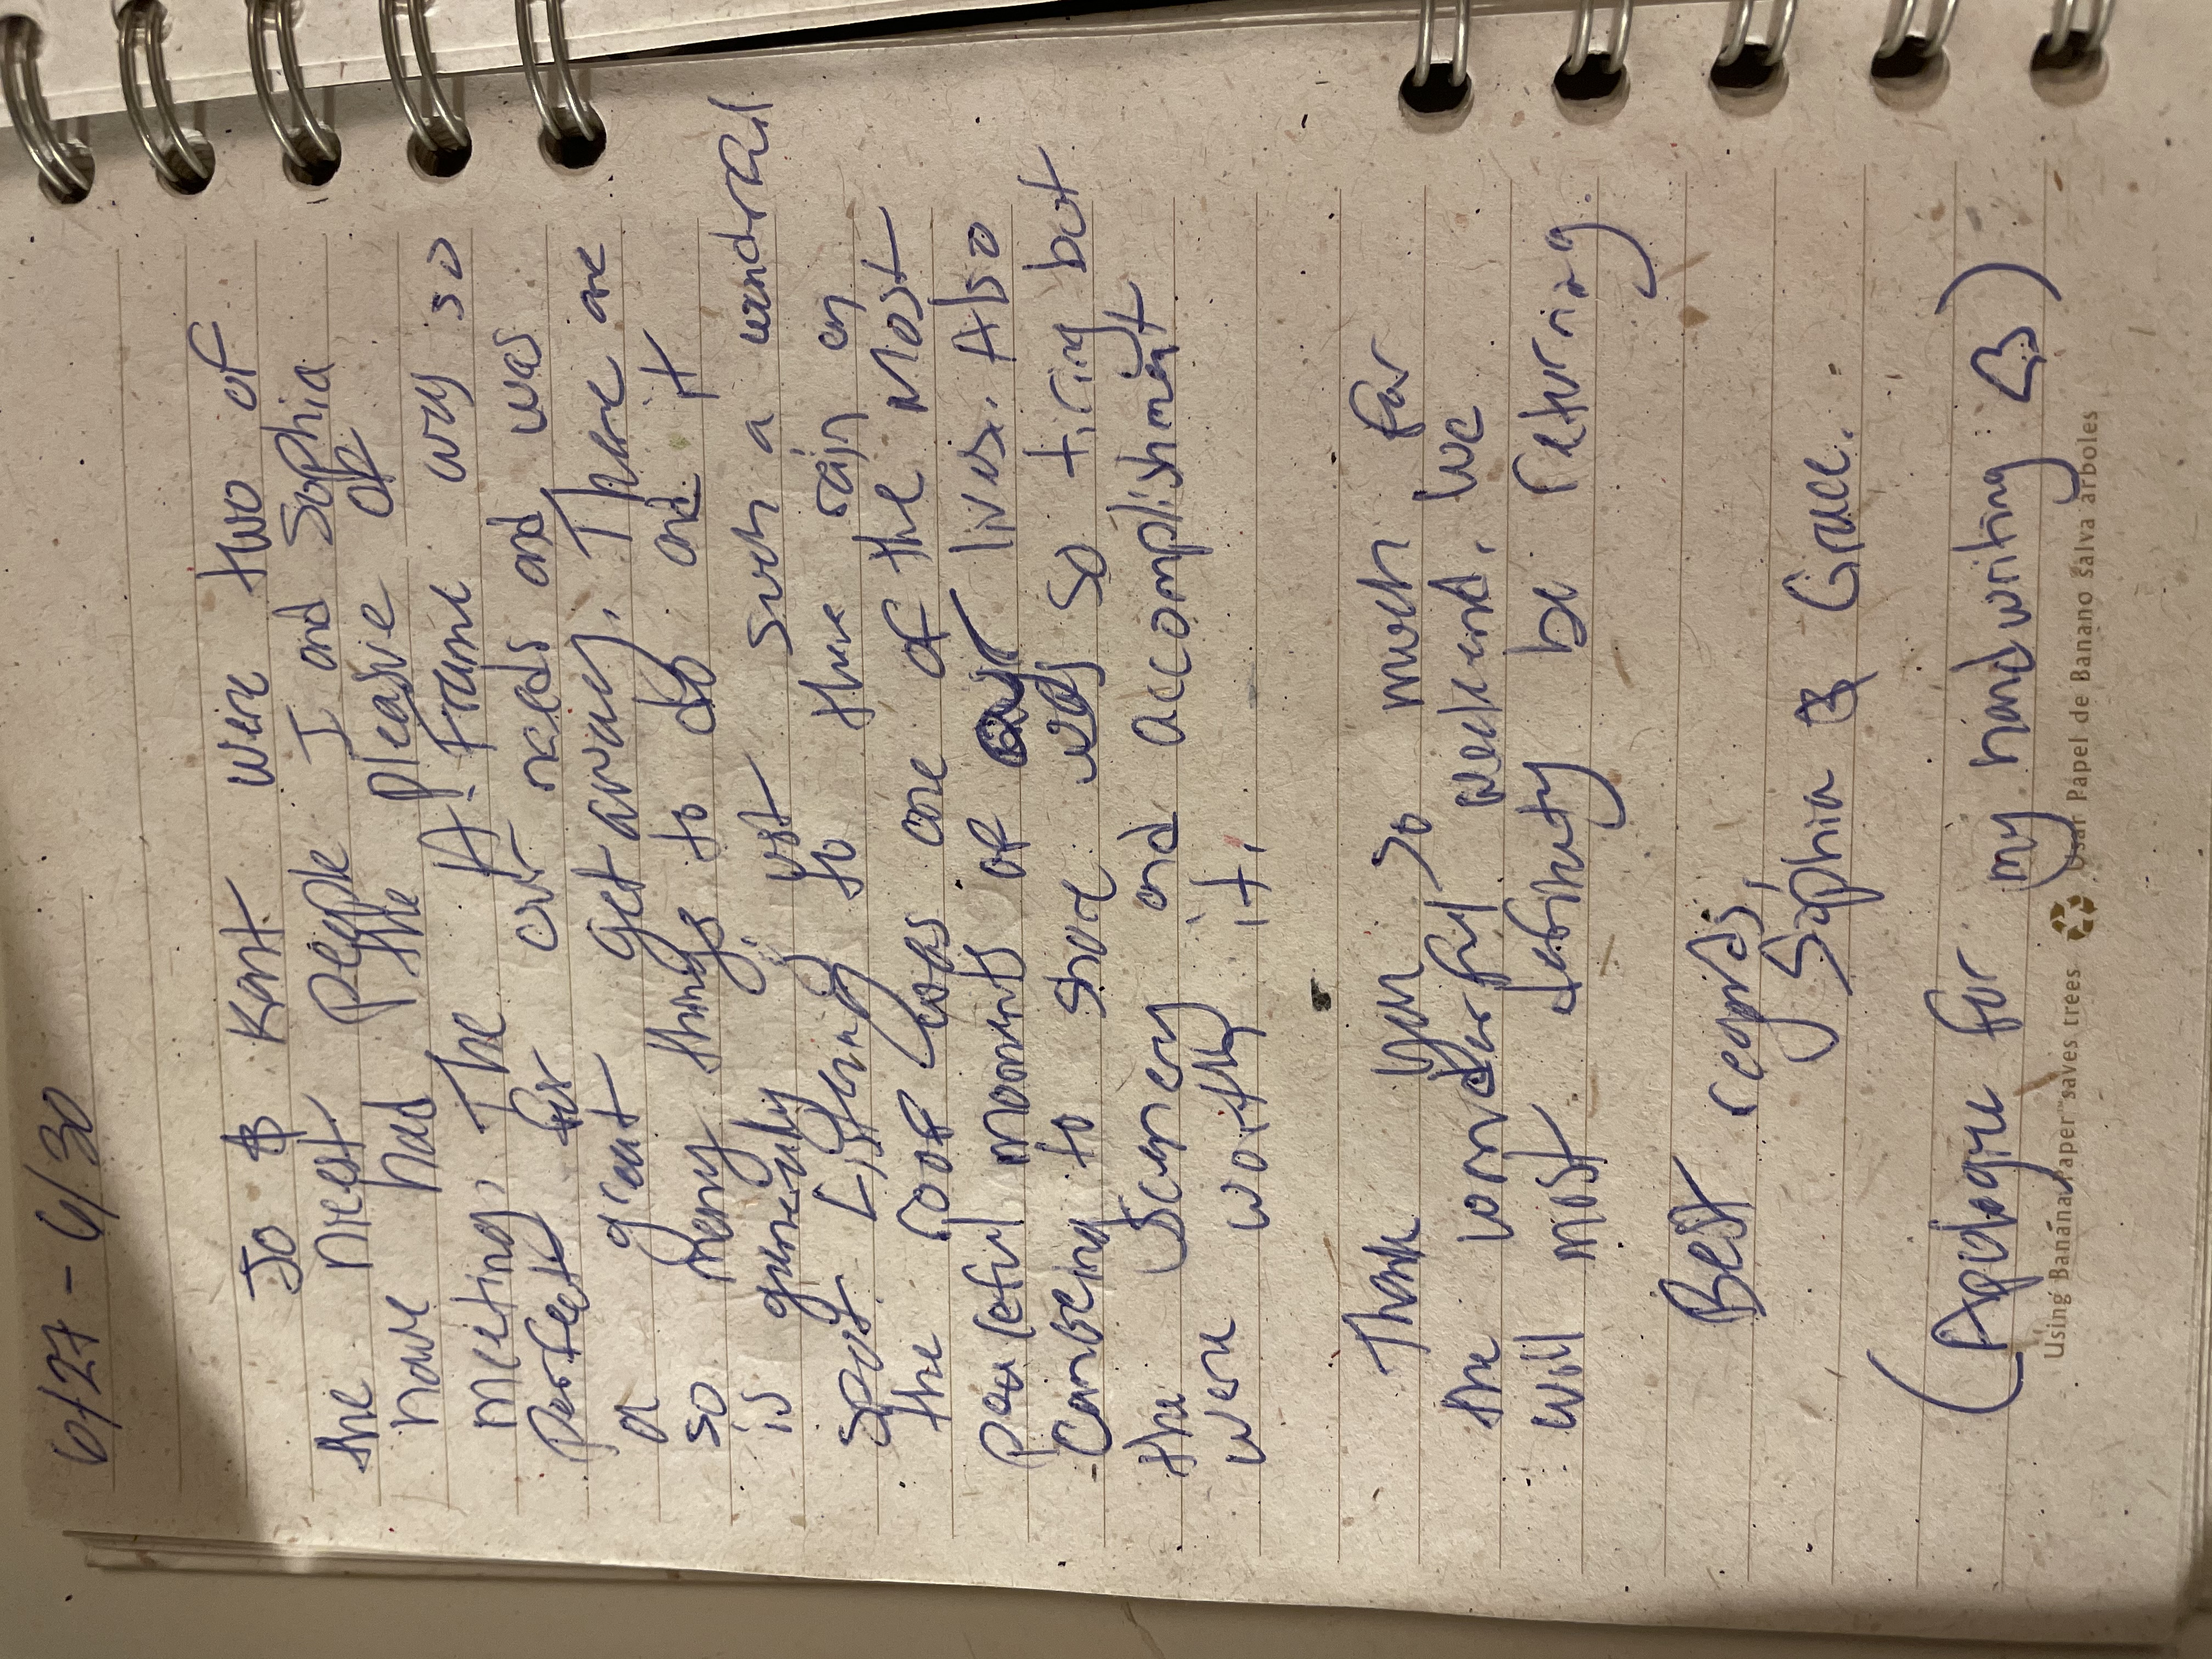 6/27 - 6/30
Jo & Kent were two of
the nicest people I and Sophia
have had the pleasure of
meeting. The A-Frame was so
perfect for our needs and was
a great getaway. There are
so many things to do and it
is generally just such a wonderful
spot. Listening to the rain on
the roof was one of the most
peaceful moments of our lives. Also
Canoeing to shore was so tiring but
the scenery and accomplishment
were worth it.
Thank you so much for
the wonderful weekend. We
will most definitely be returning.
Best regards,
Sophia & Grace.
(Apologize for my handwriting ♡)
Using Banana Paper™ saves trees Usar Papel de Banano salva árboles